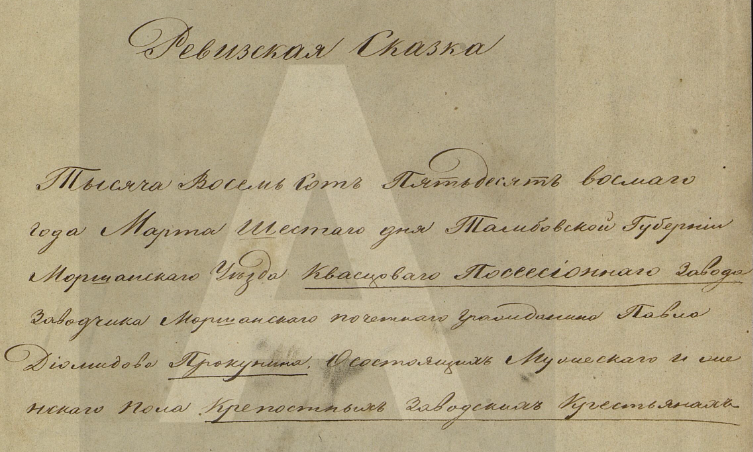 Ревизская Сказка
Тысяча Восемь Сотъ Пятьдесятъ восмаго
года Марта Шестаго дня Тамбовской Губерніи
Моршанскаго Уѣзда Квасцоваго Поссесіоннаго Завода
Заводчика Моршанскаго почетнаго гражданина Павла
Діомидова Прокунина. О состоящихъ Мужескаго и же
нскаго пола Крепостныхъ Заводскихъ Крестьянахъ